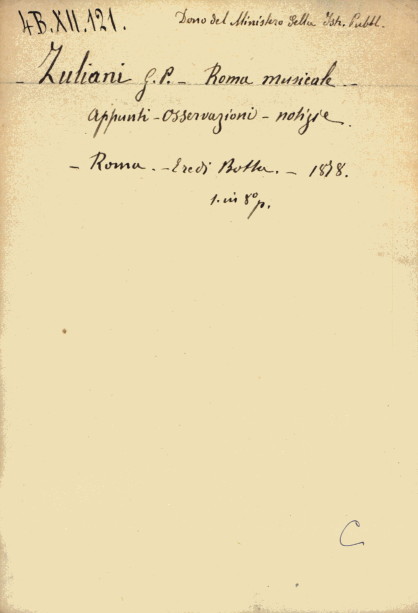 4B.XII.121.
Dono del Ministero della Istr. Pubbl.
- Zuliani G. P. - Roma musicale -
appunti - osservazioni - notizie.
- Roma. - Eredi Botta. - 1878.
1. in 8° p.
C